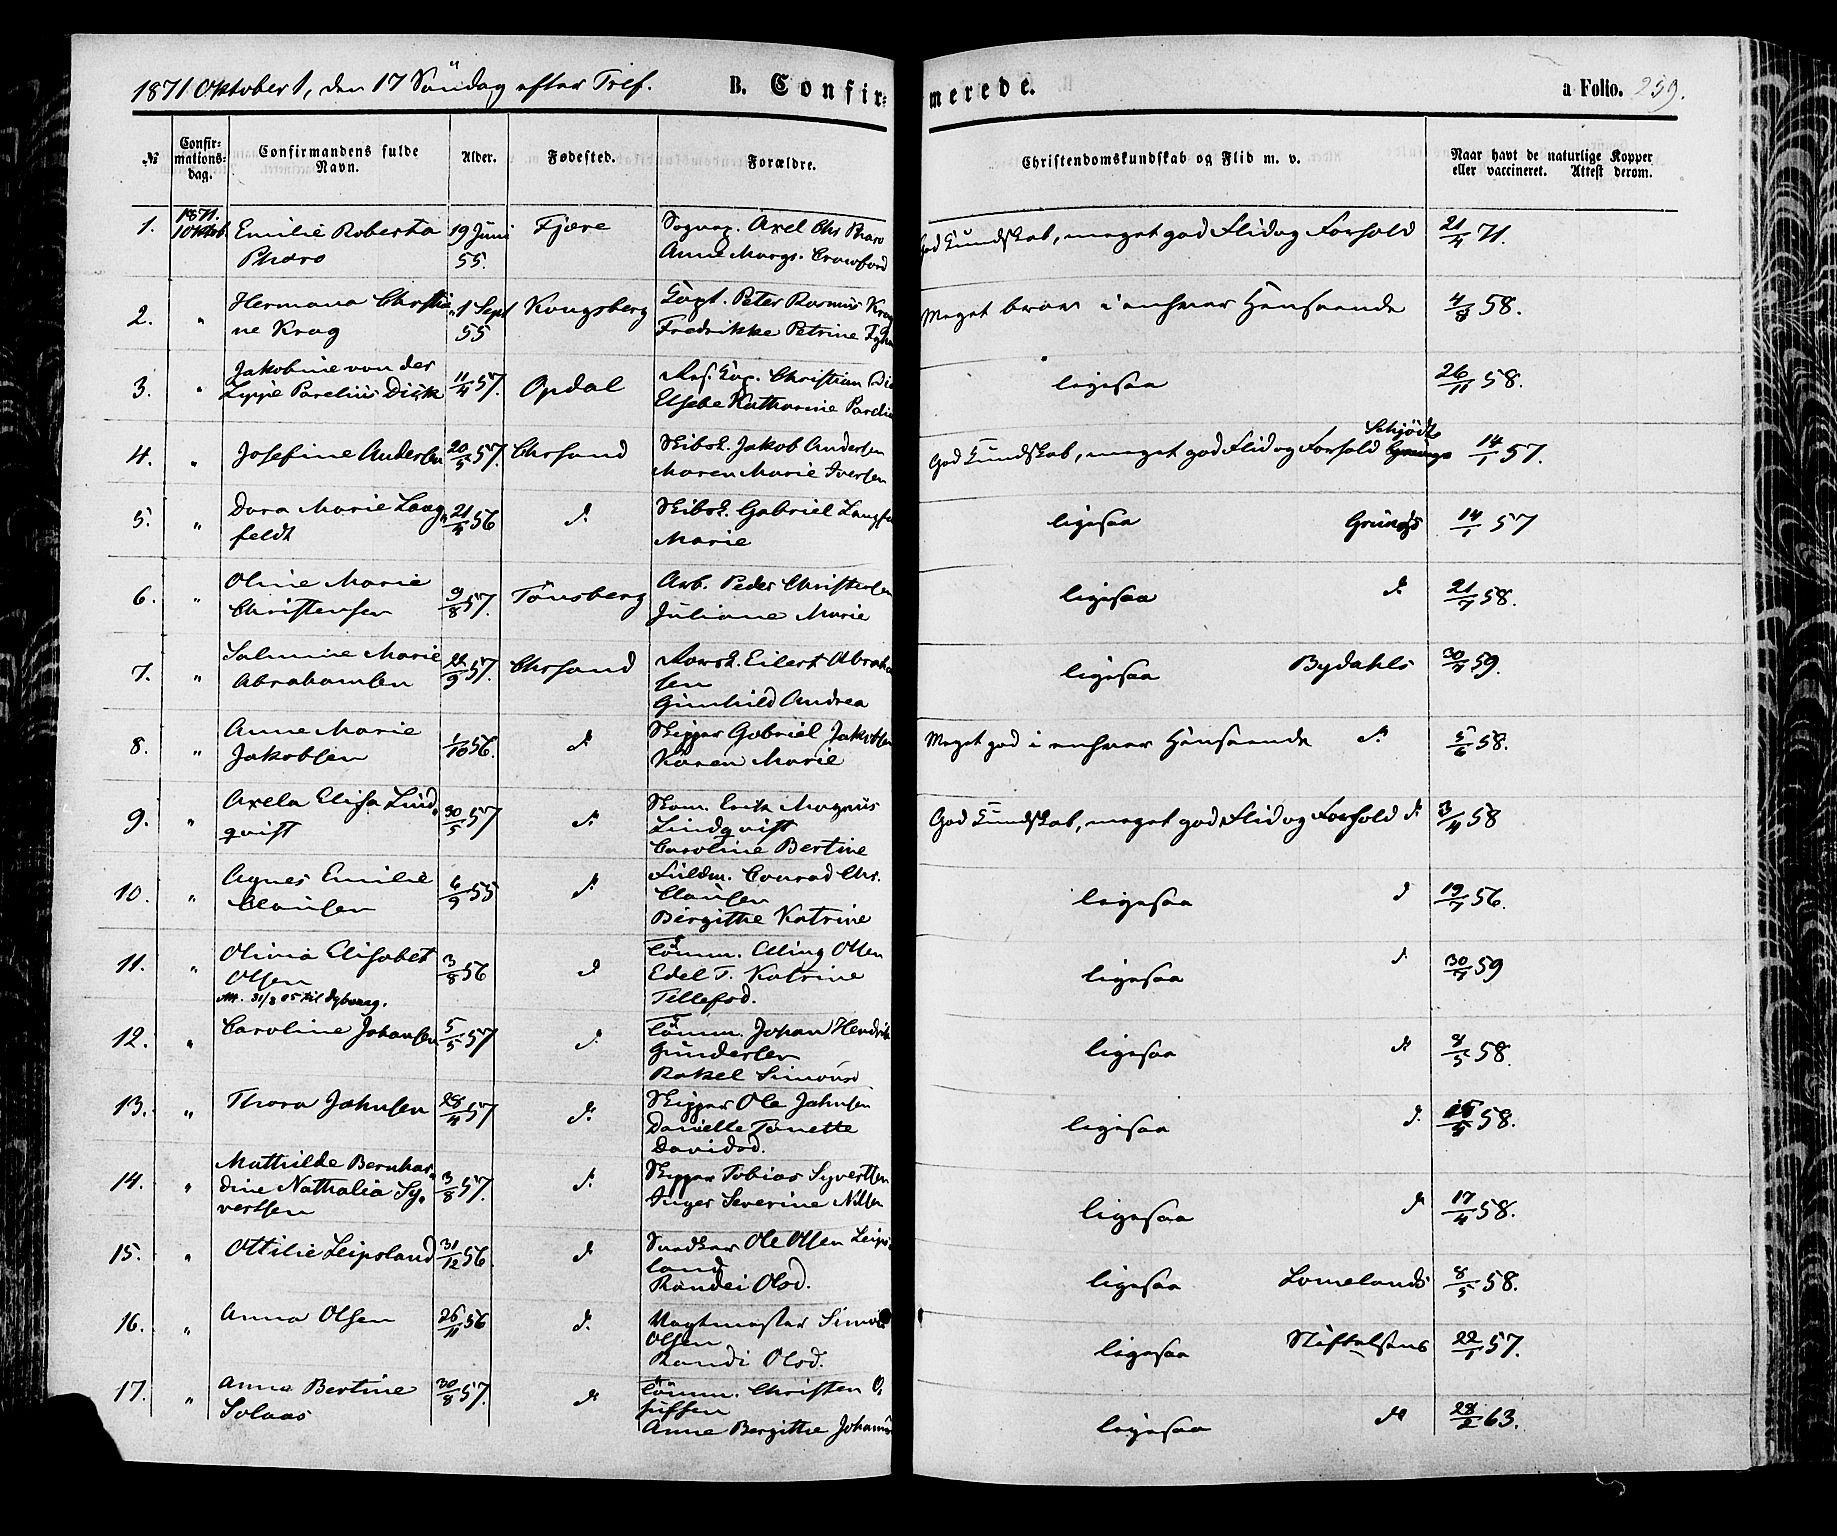 1871 Oktober 1, den 17 Söndag efter Tref. B. Confirmerede. a Folio. 259.
№ Confirmationsdag. Confirmandens fulde Navn. Alder. Fødested. Forældre. Christendomskundskab og Flid m. v. Naar havt de naturlige Kopper eller vaccineret. Attest derom.
1. 1871. 1 Oktob. Emilie Roberta 19 Juni Fjære Sognep. Axel Chr God Kundskab, meget god Flid og Forhold 21/4 71.
Pharo 55. Anne Margr. Crawford
2. " Hermana Christia 1 Sept Kongsberg Capt. Peter Rasmus Krag Meget brav i enhver Henseende 4/8 58.
ne Krag 55 Fredrikke Petrine
3. " Jakobine von der 11/4 57. Opdal Res. Cap. Christian ligesaa 26/11 58.
Lyppe Parelius Disk Elsebe Katharine
4. " Josefine Andersen 20/5 57. Chrsand Skibsk. Jakob Andersen God Kundskab, meget god Flid og Forhold Schjødts 14/1 57.
Maren Marie Iversen
5. " Dora Marie Lang 21/4 56 d. Skibsk. Gabriel ligesaa Grünings 14/1 57
feldt Marie
6. " Oline Marie 9/8 57. Tönsberg Arb. Peder Christensen ligesaa d. 21/7 58.
Christensen Juliane Marie
7. " Salmine Marie 22/9 57. Chrsand Eilert Abraham ligesaa Bydahls 30/4 59.
Abrahamsen sen
Gunhild Andrea
8. " Anne Marie 1/10 56. d. Skipper Gabriel Jakobsen Meget god i enhver Henseende d. 5/6 58.
Jakobsen Karen Marie
9. " Axela Elisa Lind 30/5 57 d. Skom. Erik Magnus God Kundskab, meget god Flid og Forhold d. 3/4 58
qvist Lindqvist
Caroline Bertine
10. " Agnes Emilie 6/9 55 d. Fuldm. Conrad Chr. ligesaa d. 19/7 56.
Clausen Clausen
Birgithe Katrine
11. " Olivia Elisabet 3/8 56 d. Tömm. Olsen ligesaa d. 30/7 59
Olsen Edel T. Katrine
Att. 31/3 05 til Dybvaag. Tellefsd.
12. " Caroline Johansen 5/5 57 d. Tömm. Johan Hendrik ligesaa d. 8/5 58.
Gundersen
Rakel Simonsd
13. " Thora Jahnsen 28/4 57 d. Skipper Ole Jahnsen ligesaa d. 58.
Danielle Tonette
Davidsd.
14. " Mathilde Bernhar 3/8 57. d. Skipper Tobias Syvertsen ligesaa d. 17/4 58.
dine Nathalia Sy Inger Severine Nilsen
vertsen
15. " Ottilie Leipsland 31/12 56. d. Snedker Ole Olsen Leips ligesaa Lomelands 8/5 58.
land
Randei Olsd.
16. " Anna Olsen 26/11 56 d. Vagtmester Simon ligesaa Stiftelsens 22/1 57.
Olsen
Randi Olsd.
17. " Anna Bertine 30/8 57. d. Tömm. Christen ligesaa d. 28/2 63.
Solaas
Anne Bergithe